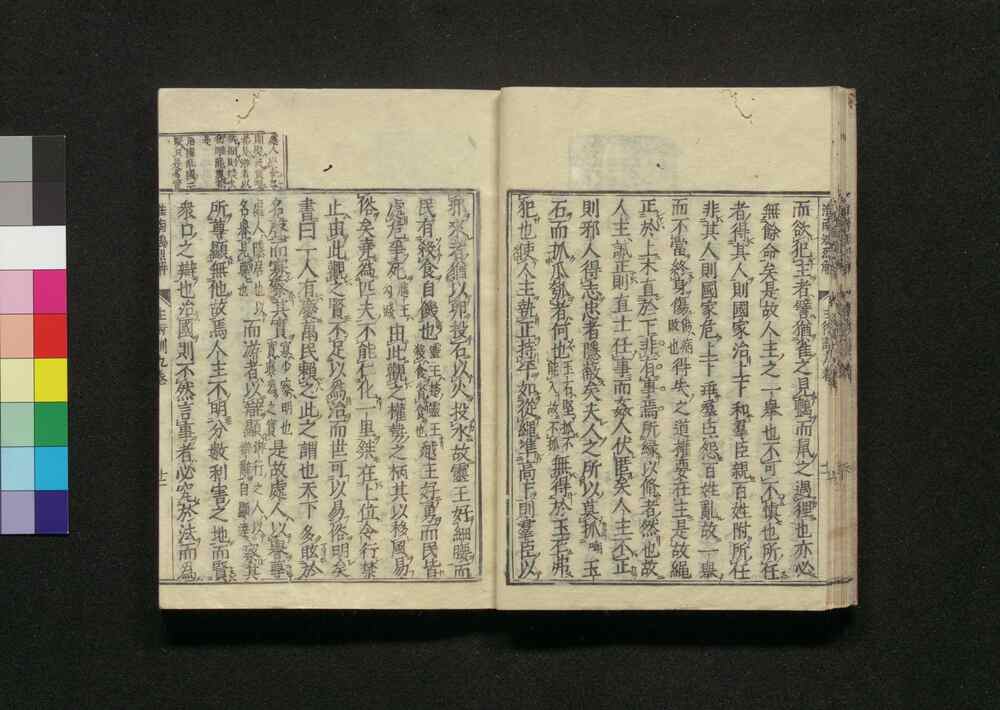 而欲犯主者譬猶雀之見鸇而鼠之遇狸也亦必
無餘命矣是故人主之一舉也不可不慎也所任
者得其人則國家治上下和羣臣親百姓附所任
非其人則國家危上下乖羣臣怨百姓亂故一舉
而不當終身傷傷病也敗也得失之道權要在主是故繩
正於上木直於下非有事焉所緣以脩者然也故
人主誠正則直士任事而姦人伏匿矣人主不正
則邪人得志忠者隱蔽矣夫人之所以莫抓玉
石而抓瓜瓠者何也玉石堅抓不能入故不抓無得於玉石弗
犯也使人主執正持平如從繩準高下則羣臣以
邪來者猶以卵投石以火投水故靈王好細腰而
民有殺食自飢也靈王楚靈王殺食省食也越王好勇而民皆
處危爭死越王句踐由此觀之權勢之柄其以移風易
俗矣堯為匹夫不能仁化一里桀在上位令行禁
止由此觀之賢不足以為治而勢可以易俗明矣
書曰一人有慶萬民賴之此之謂也天下多眩於
名聲而寡察其實寡少察明也是故處人以譽尊
而游者以辯顯察其
所尊顯無他故焉人主不明分數利害之地而賢
衆口之辯也治國則不然言事者必究於法而為